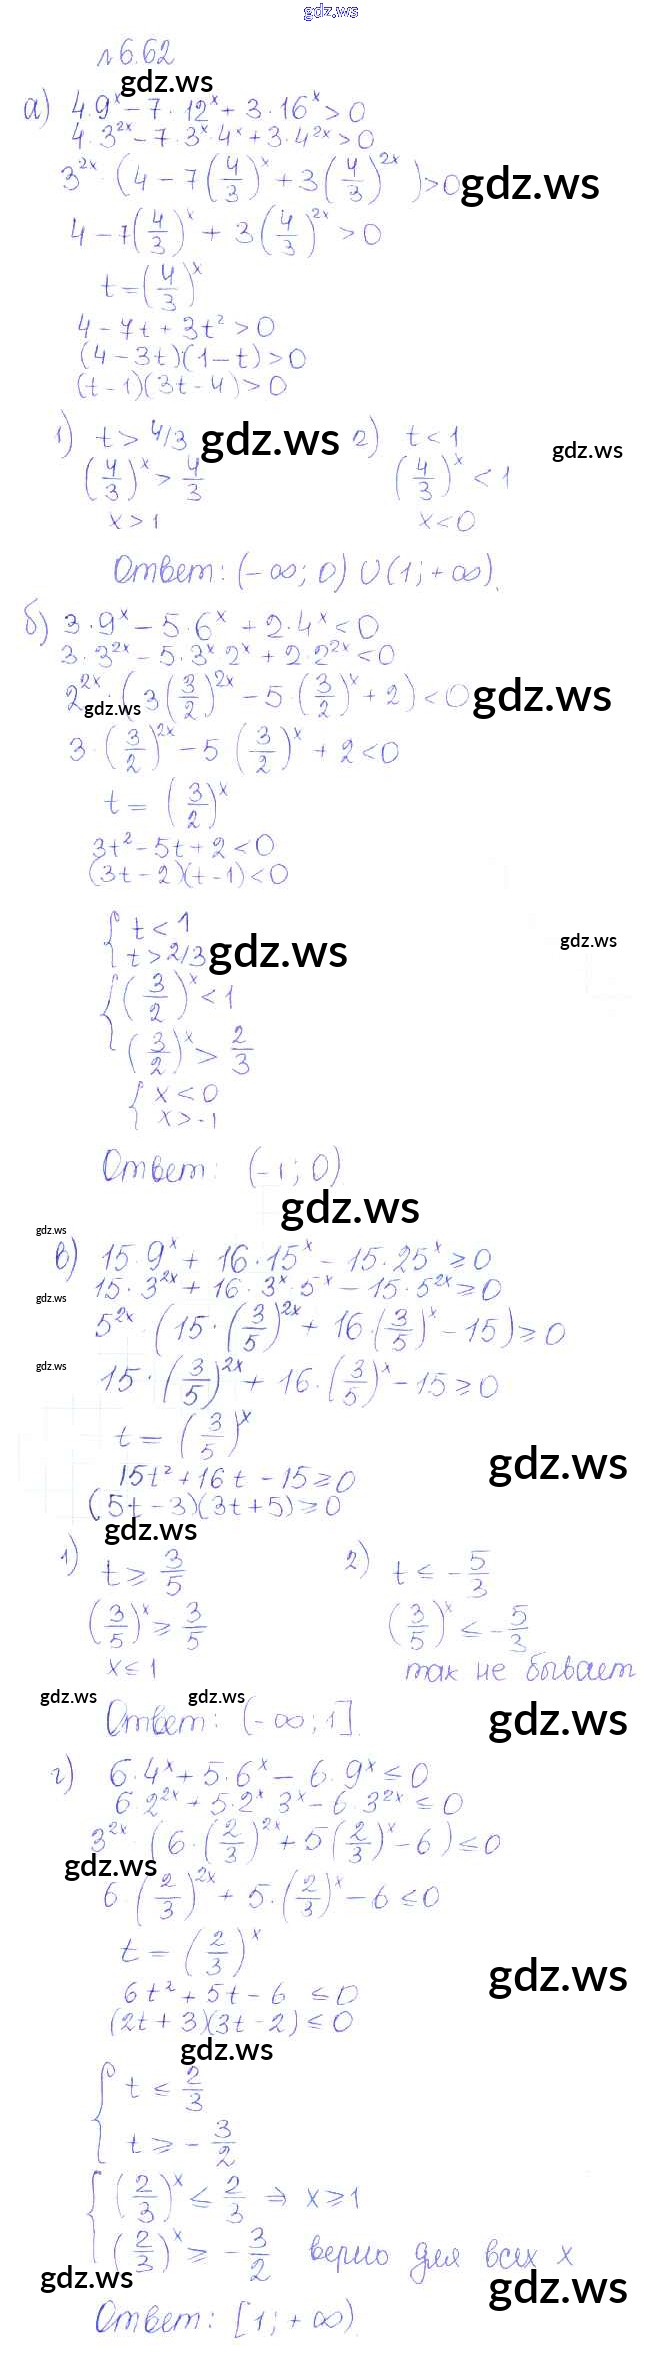 gdz.ws
№ 6.62
gdz.ws
а) 4·9^x − 7·12^x + 3·16^x > 0
4·3^2x − 7·3^x·4^x + 3·4^2x > 0
3^2x·(4 − 7(4/3)^x + 3(4/3)^2x) > 0 gdz.ws
4 − 7(4/3)^x + 3(4/3)^2x > 0
t = (4/3)^x
4 − 7t + 3t² > 0
(4 − 3t)(1 − t) > 0
(t − 1)(3t − 4) > 0
1) t > 4/3 gdz.ws 2) t < 1 gdz.ws
(4/3)^x > 4/3 (4/3)^x < 1
x > 1 x < 0
Ответ: (−∞; 0) ∪ (1; +∞).
б) 3·9^x − 5·6^x + 2·4^x < 0
3·3^2x − 5·3^x·2^x + 2·2^2x < 0
2^2x·(3(3/2)^2x − 5·(3/2)^x + 2) < 0 gdz.ws
gdz.ws
3·(3/2)^2x − 5(3/2)^x + 2 < 0
t = (3/2)^x
3t² − 5t + 2 < 0
(3t − 2)(t − 1) < 0
{ t < 1
t > 2/3 gdz.ws gdz.ws
{ (3/2)^x < 1
(3/2)^x > 2/3
{ x < 0
x > −1
Ответ: (−1; 0)
gdz.ws
gdz.ws
в) 15·9^x + 16·15^x − 15·25^x ≥ 0
15·3^2x + 16·3^x·5^x − 15·5^2x ≥ 0
gdz.ws
5^2x·(15·(3/5)^2x + 16·(3/5)^x − 15) ≥ 0
gdz.ws
15·(3/5)^2x + 16·(3/5)^x − 15 ≥ 0
t = (3/5)^x
gdz.ws
15t² + 16t − 15 ≥ 0
(5t − 3)(3t + 5) ≥ 0
gdz.ws
1) t ≥ 3/5 2) t ≤ −5/3
(3/5)^x ≥ 3/5 (3/5)^x ≤ −5/3
x ≤ 1 так не бывает
gdz.ws gdz.ws
Ответ: (−∞; 1]. gdz.ws
г) 6·4^x + 5·6^x − 6·9^x ≤ 0
6·2^2x + 5·2^x 3^x − 6·3^2x ≤ 0
3^2x·(6·(2/3)^2x + 5(2/3)^x − 6) ≤ 0
gdz.ws
6·(2/3)^2x + 5·(2/3)^x − 6 ≤ 0
t = (2/3)^x
gdz.ws
6t² + 5t − 6 ≤ 0
(2t + 3)(3t − 2) ≤ 0
gdz.ws
{ t ≤ 2/3
t ≥ −3/2
{ (2/3)^x ≤ 2/3 ⇒ x ≥ 1
(2/3)^x ≥ −3/2 верно для всех x
gdz.ws gdz.ws
Ответ: [1; +∞).